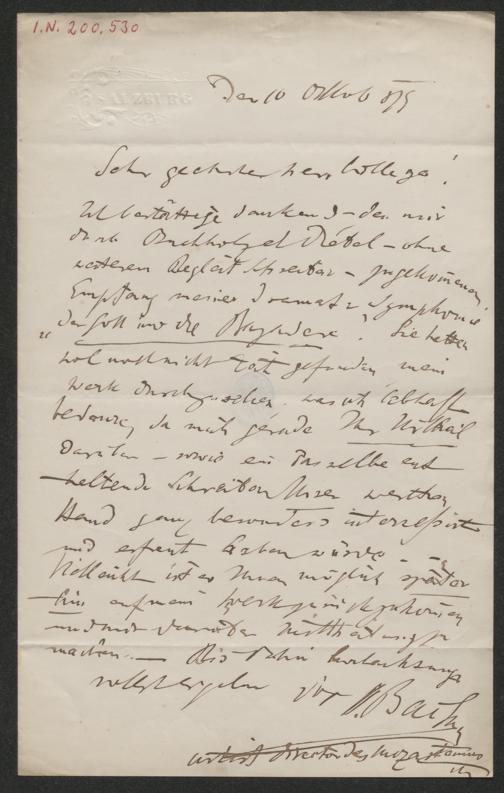 I.N. 200,530
SALZBURG
Den 10 Oktob 879
Sehr geehrter Herr College!
Ich bestättige dankend – den mir
durch Buchholzel – ohne
weiteren Begleitschreiben – zugekommenen
Empfang meiner dramat. Symphonie
"Der Gott und die Bajadere". Sie hatten
wol noch nicht Zeit gefunden mein
Werk durchzusehen, was ich lebhaft
bedaure, da mich gerade Ihr Urtheil
darüber – sowie ein dasselbe ent
haltende Schreiben Ihrer werthen
Hand ganz besonders interessirt
und erfreut haben würde. –
Vielleicht ist es Ihnen möglich später
hin auf mein Werk zurückzukommen
und mir darüber Mittheilung zu
machen. – Bis dahin hochachtungs
vollst ergeben Ihr
artist Director des Mozarteums